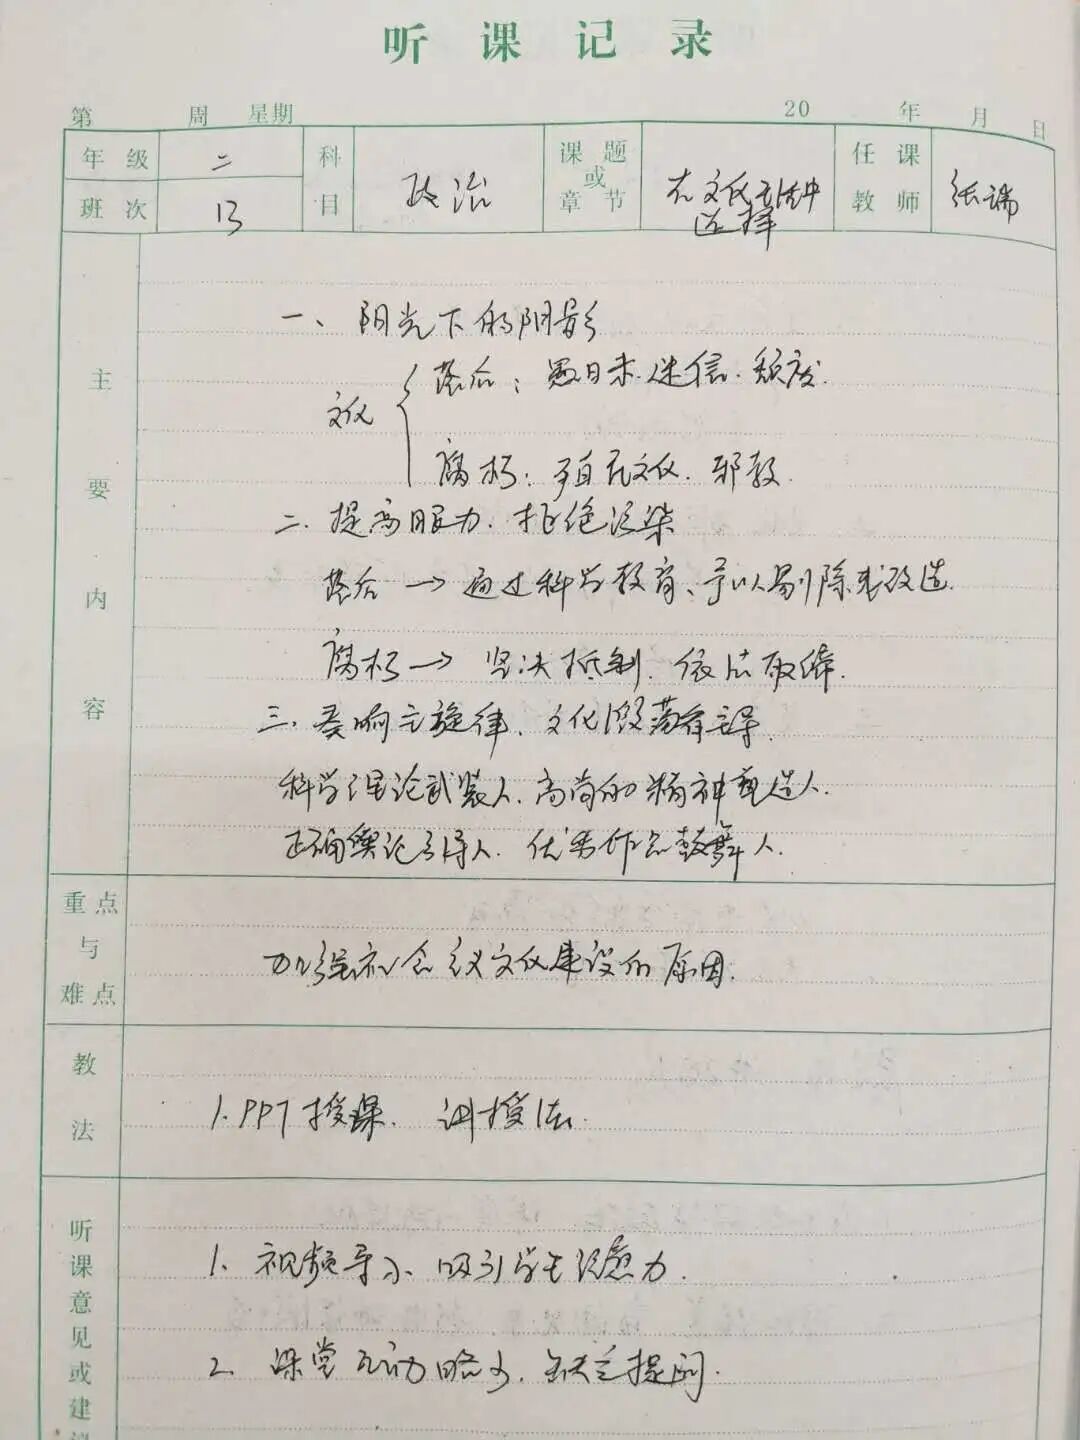 听课记录
第 周 星期 20 年 月 日
年级 二 科目 政治 课题或章节 在文化生活中选择 任课教师 张瑞
班次 13
主要内容
一、阳光下的阴影
文化
落后：愚昧.迷信.颓废.
腐朽：殖民文化.邪教.
二.提高眼力.拒绝污染
落后→通过科学教育、予以剔除或改造.
腐朽→坚决抵制.依法取缔.
三.奏响主旋律.文化
科学理论武装人.高尚的精神塑造人.
正确舆论引导人.优秀作品鼓舞人.
重点与难点
加强社会主义文化建设的原因.
教法
1.PPT授课.讲授法.
听课意见或建议
1.视频导入.吸引学生注意力.
2.课堂互动略少.缺乏提问.